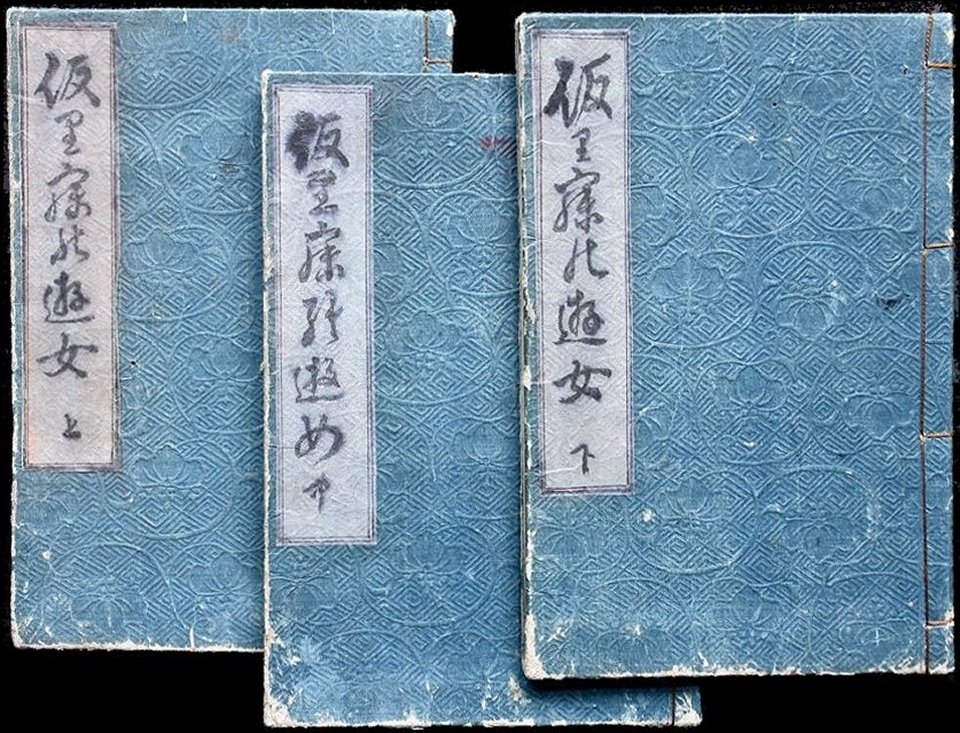 仮里寐能遊女 上
仮里寐能遊め 中
仮里寐の遊女 下